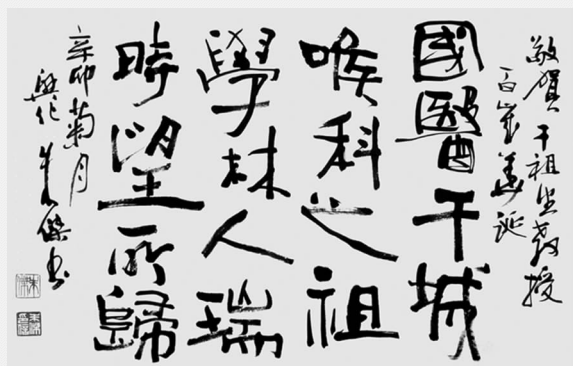 敬贺干祖望教授
百岁华诞
國醫干城
喉科之祖
學林人瑞
時望所歸
辛卯菊月
傑书